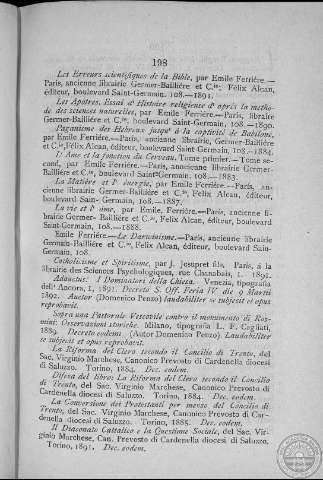 198
Les Erreurs scientifiques de la Bible, par Emile Ferriére.—
Paris, ancienne librairie Germer-Baillière et C.ie; Félix Alcan,
éditeur, boulevard Saint-Germain, 108.—1891.
Les Apôtres. Essai d' Histoire religieuse d' après la metho-
de des sciences naturelles, par Emile Ferrière.—Paris, librairie
Germer-Baillière et C.ie, boulevard Saint-Germain, 108.—1890.
Paganisme des Hebreux jusqu' à la captivité de Babilone,
par Emile Ferrière.—Paris, ancienne librairie, Germer-Baillière
et C.ie, Félix Alcan, éditeur, boulevard Saint-Germain, 108.—1884.
L' Ame et la fonction du Cerveau, Tome primier.—Tome se-
cond, par Emile Ferrière.—Paris, anncienne librairie Germer-
Baillière et C.ie, boulevard Saint-Germain, 108.—1883.
La Matière et l' énergie, par Emile Ferrière.—Paris, an-
cienne librairie Germer-Baillière et C.ie, Félix Alcan, éditeur,
boulevard Saint-Germain, 108.—1887.
La vie et l' âme, par Emile, Ferrière.—Paris, ancienne li-
brairie Germer-Baillière et C.ie, Félix Alcan, éditeur, boulevard
Saint-Germain, 108.—1888.
Emile Ferrière.—Le Darwinisme.—Paris, ancienne librairie
Germer-Baillière et C.ie, Félix Alcan, éditeur, boulevard Saint-
Germain, 108.
Catholicisme et Spiritisme, par J. Jesupret fils, Paris, á la
librairie des Sciences Psychologiques, rue Chabanais, 1. 1892.
Adonistus: I Dominatori della Chiesa. Venezia, tipografia
dell' Ancora, 1, 1892. Decreto S. Off. Feria IV die 9 Martii
1892. Auctor (Domenico Penzo) laudabiliter se subjecit et opus
reprobavit.
Sopra una Pastorale Vescovile contro il monumento di Ros-
mini: Osservazioni storiche. Milano, tipografia L. F. Cogliati,
1889. Decreto eodem. (Autor Domenico Penzo). Laudabiliter
se subjecit et opus reprobavit.
La Riforma del Clero secondo il Concilio di Trento, del
Sac. Virginio Marchese, Canonico Prevosto di Cardenella diocesi
di Saluzzo. Torino, 1884. Dec. eodem.
Difesa del libro: La Riforma del Clero secondo il Concilio
di Trento, del Sac. Virginio Marchese, Canonico Prevosto di
Cardenella diocesi di Saluzzo. Torino, 1884. Dec. eodem.
La Conversione dei Protestanti per mezzo del Concilio di
Trento, del Sac. Virginio Marchese, Canonico Prevosto di Car-
denella diocesi di Saluzzo. Torino, 1885. Dec. eodem.
Il Diaconato Cattolico e la Questione Sociale, del Sac. Vir-
ginio Marchese, Can. Prevosto di Cardenella diocesi di Saluzzo.
Torino, 1891. Dec. eodem.